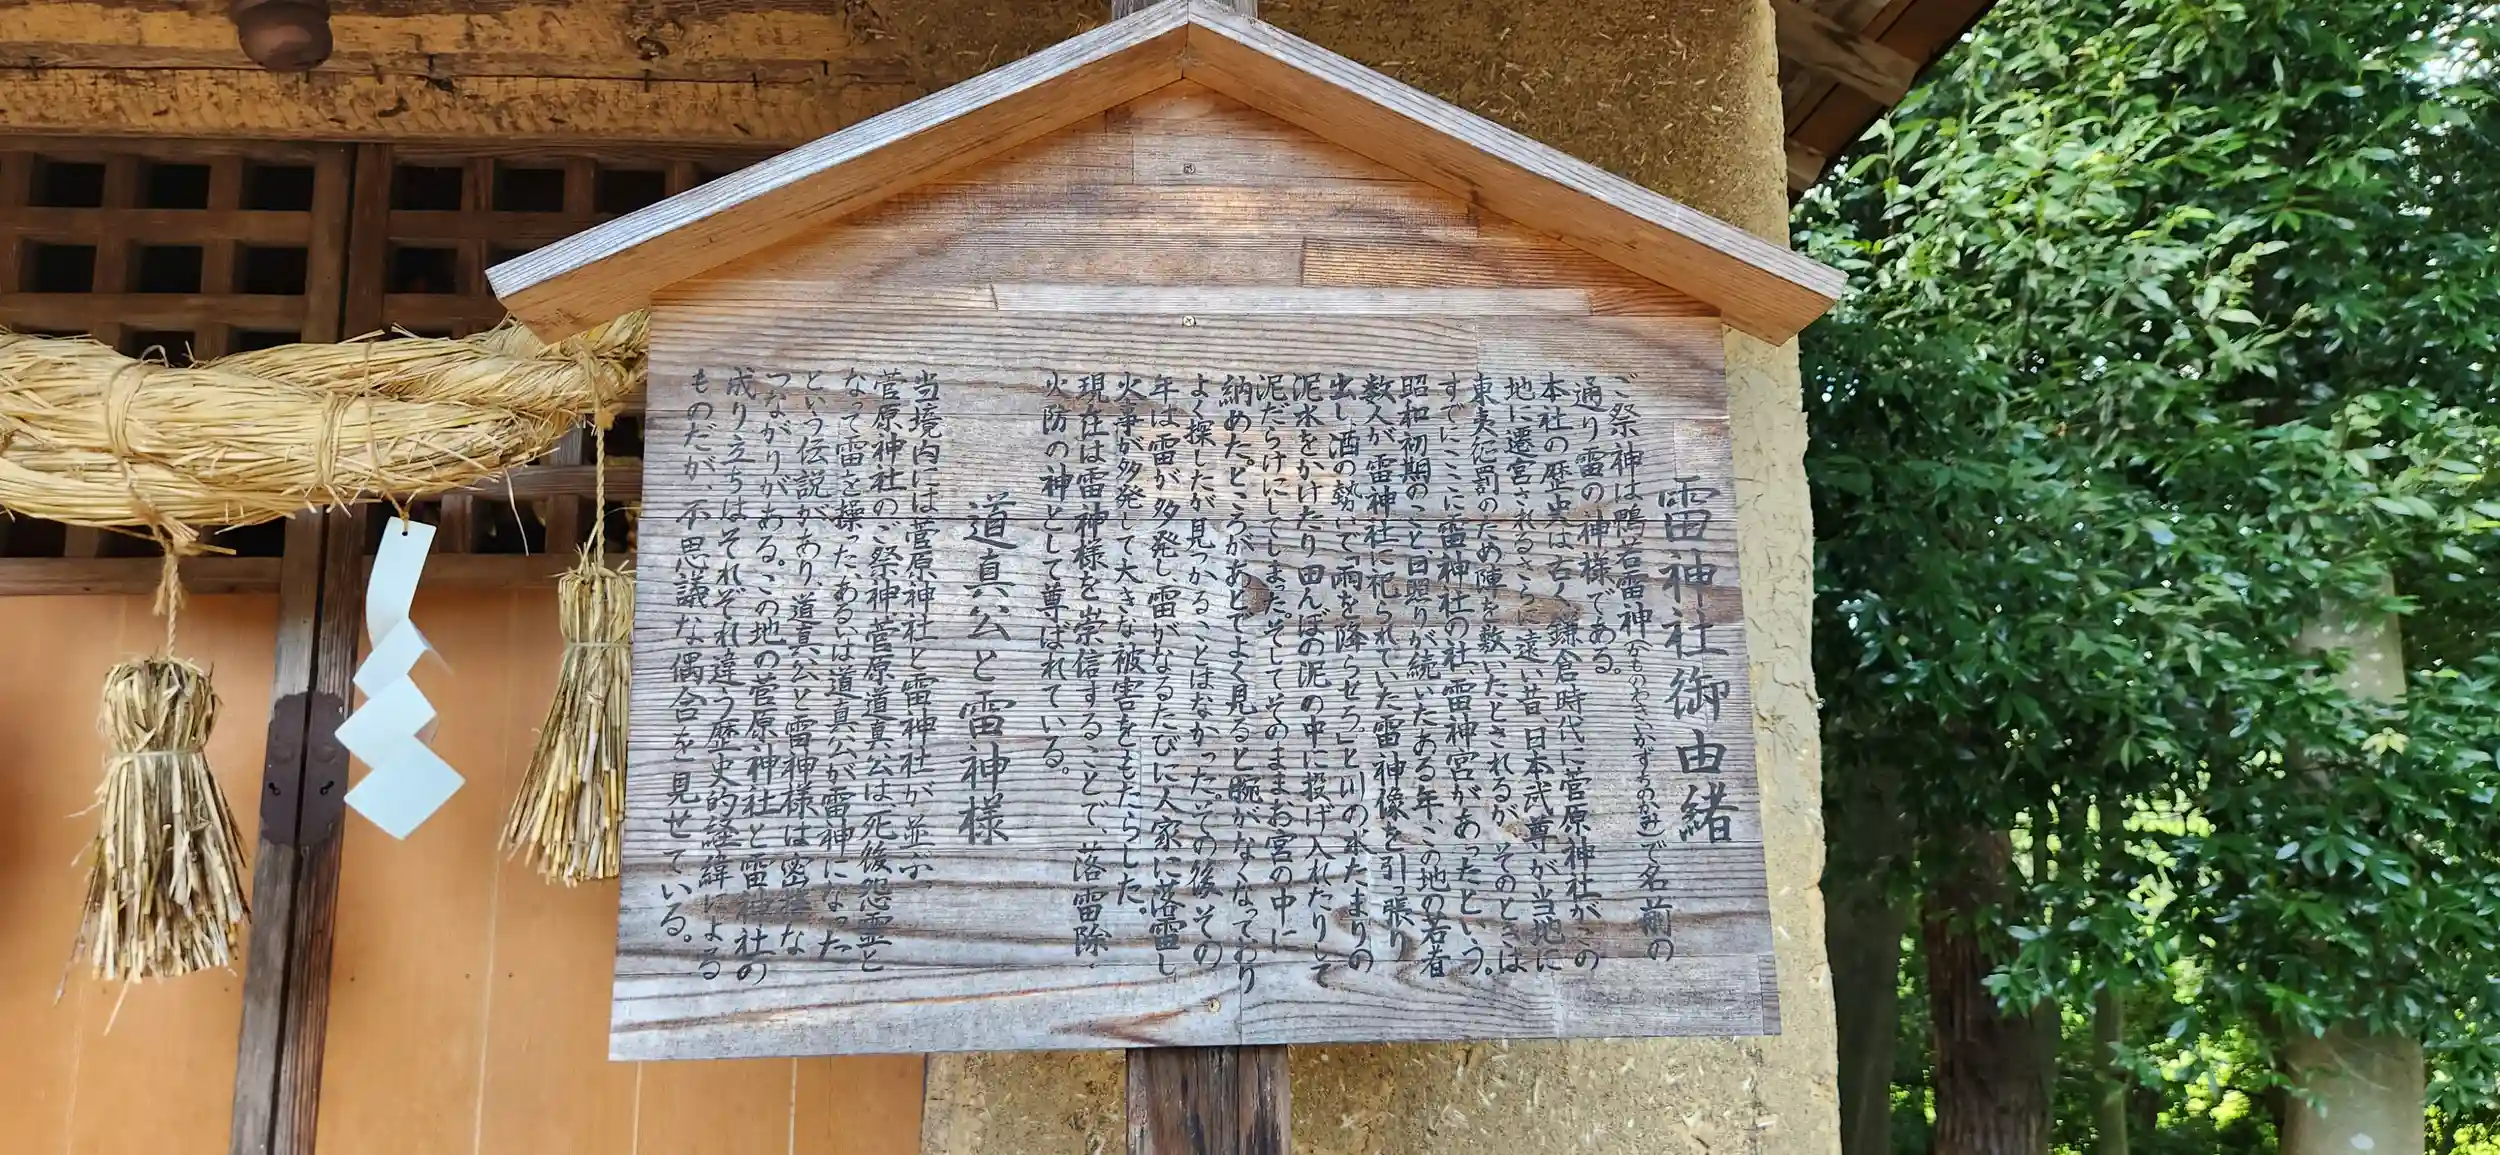 雷神社御由緒
ご祭神は鴨若雷神(かものわさいかずちのかみ)で名前の
通り雷の神様である。
本社の歴史は古く、鎌倉時代に菅原神社がこの
地に遷宮されるさらに遠い昔、日本武尊が当地に
東夷征罰のため陣を敷いたとされるが、そのときは
すでにここに雷神社の社、雷神宮があったという。
昭和初期のこと、日照りが続いたある年、この地の若者
数人が雷神社に祀られていた雷神像を引っ張り
出し、酒の勢いで雨を降らせろ」と川の水たまりの
泥水をかけたり田んぼの泥の中に投げ入れたりして
泥だらけにしてしまった。そしてそのままお宮の中に
納めた。ところがあとでよく見ると腕がなくなっており
よく探したが見つかることはなかった。その後、その
年は雷が多発し、雷がなるたびに人家に落雷し
火事が多発して大きな被害をもたらした。
現在は雷神様を崇信することで、落雷除、
火防の神として尊ばれている。
道真公と雷神様
当境内には菅原神社と雷神社が並ぶ。
菅原神社のご祭神菅原道真公は死後怨霊と
なって雷を操った、あるいは道真公が雷神になった
という伝説があり、道真公と雷神様は密接な
つながりがある。この地の菅原神社と雷神社の
成り立ちはそれぞれ違う歴史的経緯による
ものだが、不思議な偶合を見せている。